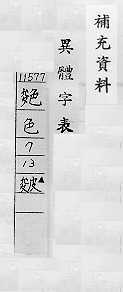 補充資料
異體字表
11577
色
7
13
皴▲